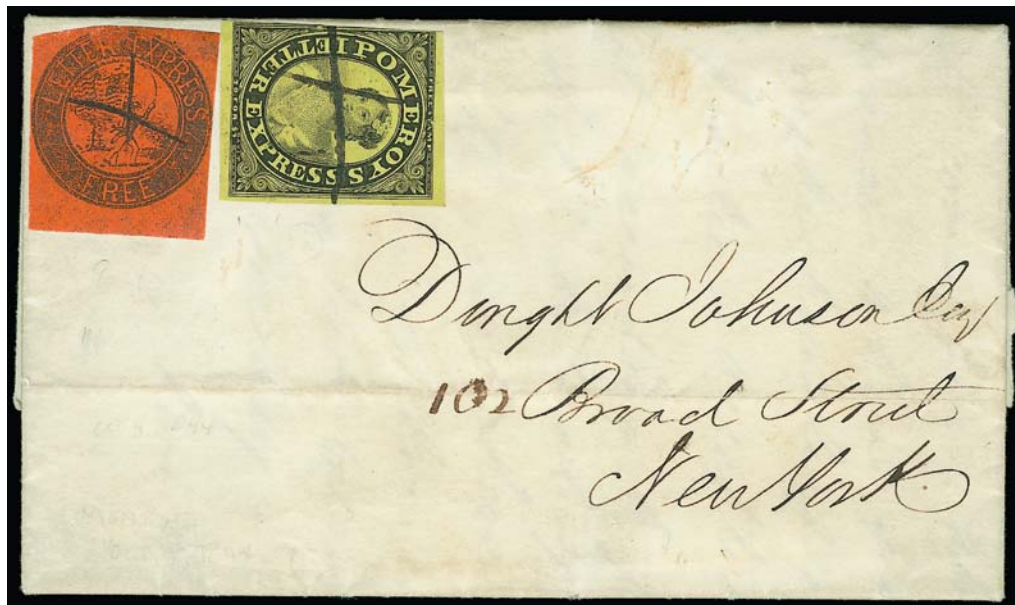 LETTER EXPRESS
FREE
POMEROY'S
LETTER EXPRESS
FREE STAMP
20 FOR $1
Dwight Johnson Esq
102 Broad Street
New York